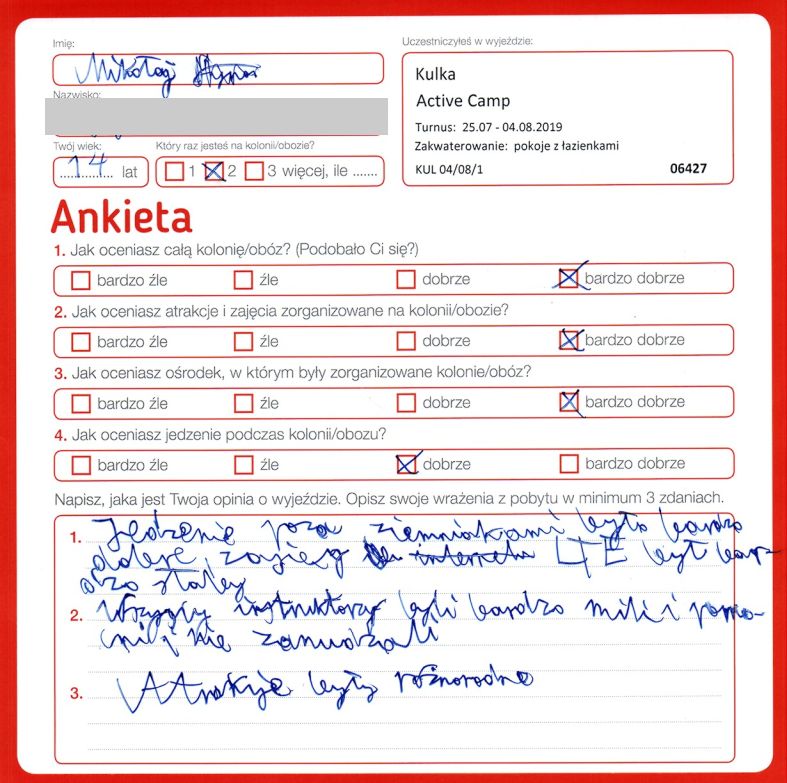 Imię:
Uczestniczyłeś w wyjeździe:
Mikołaj
Kulka
Active Camp
Nazwisko:
Turnus: 25.07 - 04.08.2019
Zakwaterowanie: pokoje z łazienkami
KUL 04/08/1 06427
Twój wiek: Który raz jesteś na kolonii/obozie?
14 lat 1 2 3 więcej, ile .......
Ankieta
1. Jak oceniasz całą kolonię/obóz? (Podobało Ci się?)
bardzo źle źle dobrze bardzo dobrze
2. Jak oceniasz atrakcje i zajęcia zorganizowane na kolonii/obozie?
bardzo źle źle dobrze bardzo dobrze
3. Jak oceniasz ośrodek, w którym były zorganizowane kolonie/obóz?
bardzo źle źle dobrze bardzo dobrze
4. Jak oceniasz jedzenie podczas kolonii/obozu?
bardzo źle źle dobrze bardzo dobrze
Napisz, jaka jest Twoja opinia o wyjeździe. Opisz swoje wrażenia z pobytu w minimum 3 zdaniach.
1. Jedzenie poza ziemniakami było bardzo
dobre, zasięg internetu był bar-
dzo słaby
2. Wszyscy instruktorzy byli bardzo mili i pomo-
cni i nie zanudzali
3. Atrakcje były różnorodne